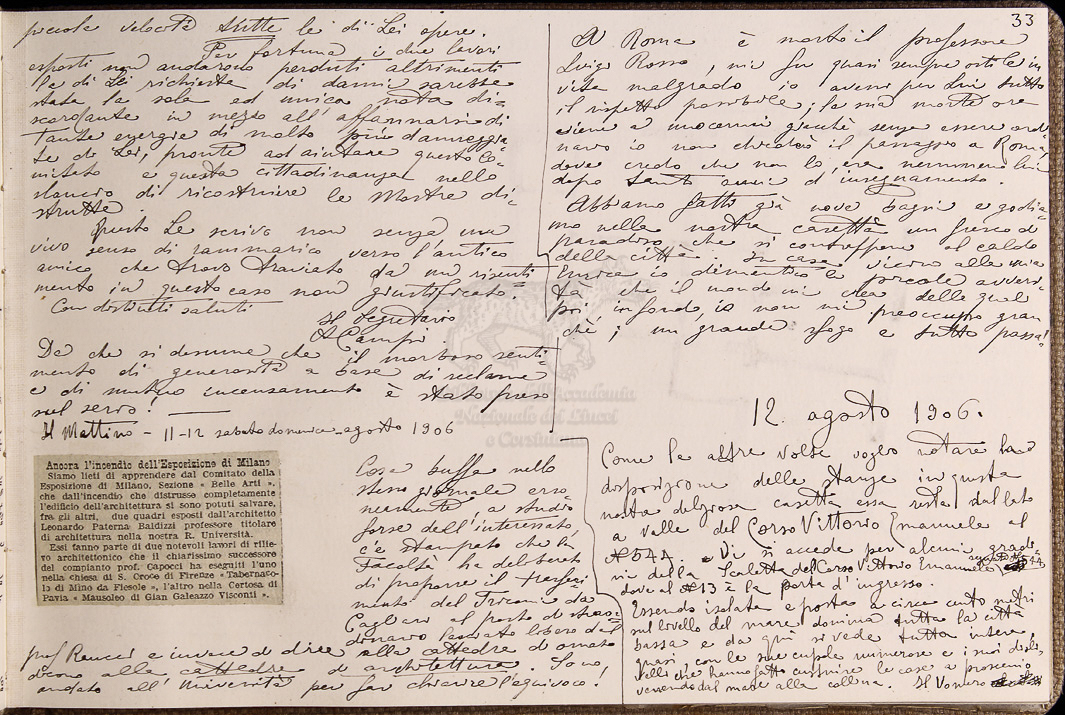 piccola velocità tutte le di Lei opere.
Per fortuna i due lavori
esposti non andarono perduti altrimenti
le di Lei richieste di danni sarebbe
stata la sola ed unica nota di-
scordante in mezzo all'affannarsi di
tante energie di molto più danneggia-
te di Lei, pronte ad aiutare questo Co-
mitato e questa cittadinanza nello
slancio di ricostruire le Mostre di-
strutte
Questo Le scrivo non senza un
vivo senso di rammarico verso l'antico
amico che trovo traviato da un risenti
mento in questo caso non giustificato.
Con distinti saluti
Il Segretario
Campi
Da che si desume che il morboso senti-
mento di generosità a base di reclame
e di mutuo incensamento è stato preso
sul serio!
Il Mattino - 11-12 sabato domenica - agosto 1906
Ancora l'incendio dell'Esposizione di Milano
Siamo lieti di apprendere dal Comitato della
Esposizione di Milano, Sezione « Belle Arti »,
che dall'incendio che distrusse completamente
l'edificio dell'architettura si sono potuti salvare,
fra gli altri, due quadri esposti dall'architetto
Leonardo Paterna Baldizzi professore titolare
di architettura nella nostra R. Università.
Essi fanno parte di due notevoli lavori di rilie-
vo architettonico che il chiarissimo successore
del compianto prof. Capocci ha eseguiti l'uno
nella chiesa di S. Croce di Firenze « Tabernaco-
lo di Mino da Fiesole », l'altro nella Certosa di
Pavia « Mausoleo di Gian Galeazzo Visconti ».
Cosa buffa nello
stesso giornale erro-
neamente, a studio
forse dell'interessato,
c'è stampato che la
Facoltà ha deliberato
di proporre il trasferi
mento del Tricomi da
Cagliari al posto di straor-
dinario lasciato libero dal
prof Raucci e invece di dire alla cattedra d'ornato
dicono alla cattedra d'architettura. Sono,
andato all'Università per far chiarire l'equivoco!
33
A Roma è morto il professore
Luigi Rosso, mi fu quasi sempre ostile in
vita malgrado io avessi per lui tutto
il rispetto possibile; la sua morte ora
viene a nuocermi giacchè senza essere ordi
nario io non chiederò il passaggio a Roma,
dove credo che non lo era nemmeno lui
dopo tanti anni d'insegnamento.
Abbiamo fatti già nove bagni e godia-
mo nella nostra casetta un fresco di
paradiso che si contrappone al caldo
della città. In casa vicino alla mia
Enrica io dimentico le piccole avversi-
tà che il mondo mi crea delle qual
poi, in fondo, io non mi preoccupo gran
chè; un grande sfogo e tutto passa!
12. agosto 1906.
Come le altre volte voglio notare la
disposizione delle stanze in questa
nostra deliziosa casetta essa resta dal lato
a valle del Corso Vittorio Emanuele al
N 544. Vi si accede per alcuni gradi-
ni della Scaletta del Corso Vittorio Emanuele
dove al N 13 è la porta d'ingresso.
Essendo isolata e posta a circa cento metri
sul livello del mare domina tutta la città
bassa e da qui si vede tutta intera,
quasi, con le sue cupole numerose e i suoi disli-
velli che hanno fatto costruire le case a proscenio
venendo dal mare alla collina. Il Vomero